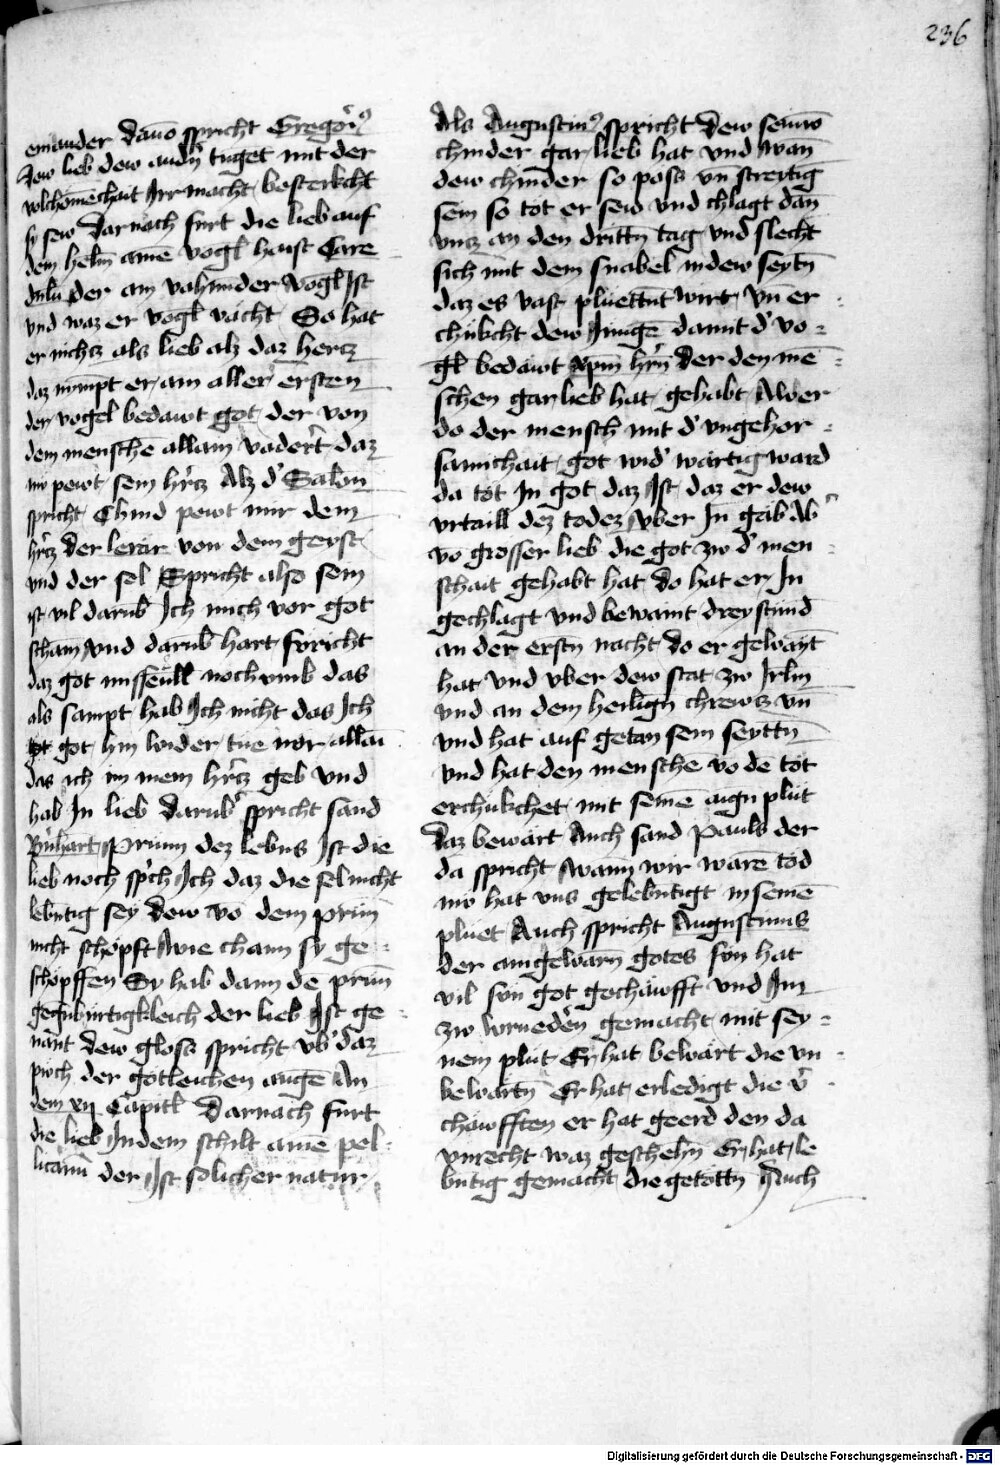 236
einander Dauō spricht Gregori⁹
dew lieb dew andn̄ tuget mit der
volchōmēchait Irr macht besterkcht
sy sew Darnach furt die lieb auf
dem helm ainē vogl haist Care
der ain vahunder vogl Ist
vnd waz er vogl vächt So hat
er nichcz als lieb alz daz hercz
daz nympt er am aller ersten
der vogel bedawt got der von
dem menschē allain vadert daz
im pewt sein hr̄cz Alz d' Salom̄
spricht Chind pewt mir dem
hr̄cz Der lerär von dem geyst
vnd der sel Spricht also sein
ist vil darūb Ich mich vor got
scham vnd darūb hart fyricht
daz got missfeull noch vmb das
als sampt hab Ich nicht das Ich
got hin wider tue nür allaī
das ich im mein hr̄cz geb vnd
hab In lieb Darūb spricht sand
Bn̄hart Prünn dez lebns Ist die
lieb noch sp'ch Ich daz die sel nicht
lebntig sey Dew vō dem prün̄
nicht schöpft wie chann sy ge
schöpffen Sy hab dann dē prün̄
gegnbürtigkleich der lieb Ist ge
nant Dew gloss spricht vb' daz
püch der gotleichen augē An
dem xij Capitl Darnach furt
die lieb In dem schilt ainē pel
licanū der Ist solicher natur
Als Augustin⁹ spricht Dew seinw̄
chinder gar lieb hat vnd wan̄
dew chinder so poss vn̄ streytig
sein so tot er sew vnd chlagt dan̄
vncz an den drittn̄ tag vnd slecht
sich mit dem snabel in dew seytn̄
daz es vast plüettnt wirt vn̄ er
chükcht dew Jungē damit d' vo
gl bedawt xpm̄ hr̄n̄ Der den mē
schen gar lieb hat gehabt Aber
do der mensch mit d' vngehor
samichait got wid' wärtig ward
da tot In got daz Ist daz er dew
vrtaill dez todez vber In gab Ab'
vo grosser lieb die got zw d' men
schait gehabt hat Do hat er In
gechlagt vnd bewaint dreystund̄
an der erstn̄ nacht Do er gewaint
hat vnd vber dew stat zw Irl̄m
vnd an dem heilign̄ chrewcz vn̄
vnd hat auf getan sein seyttn̄
vnd hat den menschē vō dē tōt
erchukchet mit seinē aign plut
Daz bewärt Auch sand Pauls der
da spricht wann wir warē töd
im hat vns gelebntigt in seinē
pluet Auch spricht Augustinus
der aingewarn̄ gotes sün hat
vil sün got gechäwfft vnd Im
zw brüedern̄ gemacht mit sey
nem plut Er hat bewärt die vn
bewärtn̄ Er hat erledigt die v'
chäwfften er hat geerd den da
vnrecht waz geschehn̄ Er hat le
bntig gemacht die getottn̄ Auch
Digitalisierung gefördert durch die Deutsche Forschungsgemeinschaft - DFG